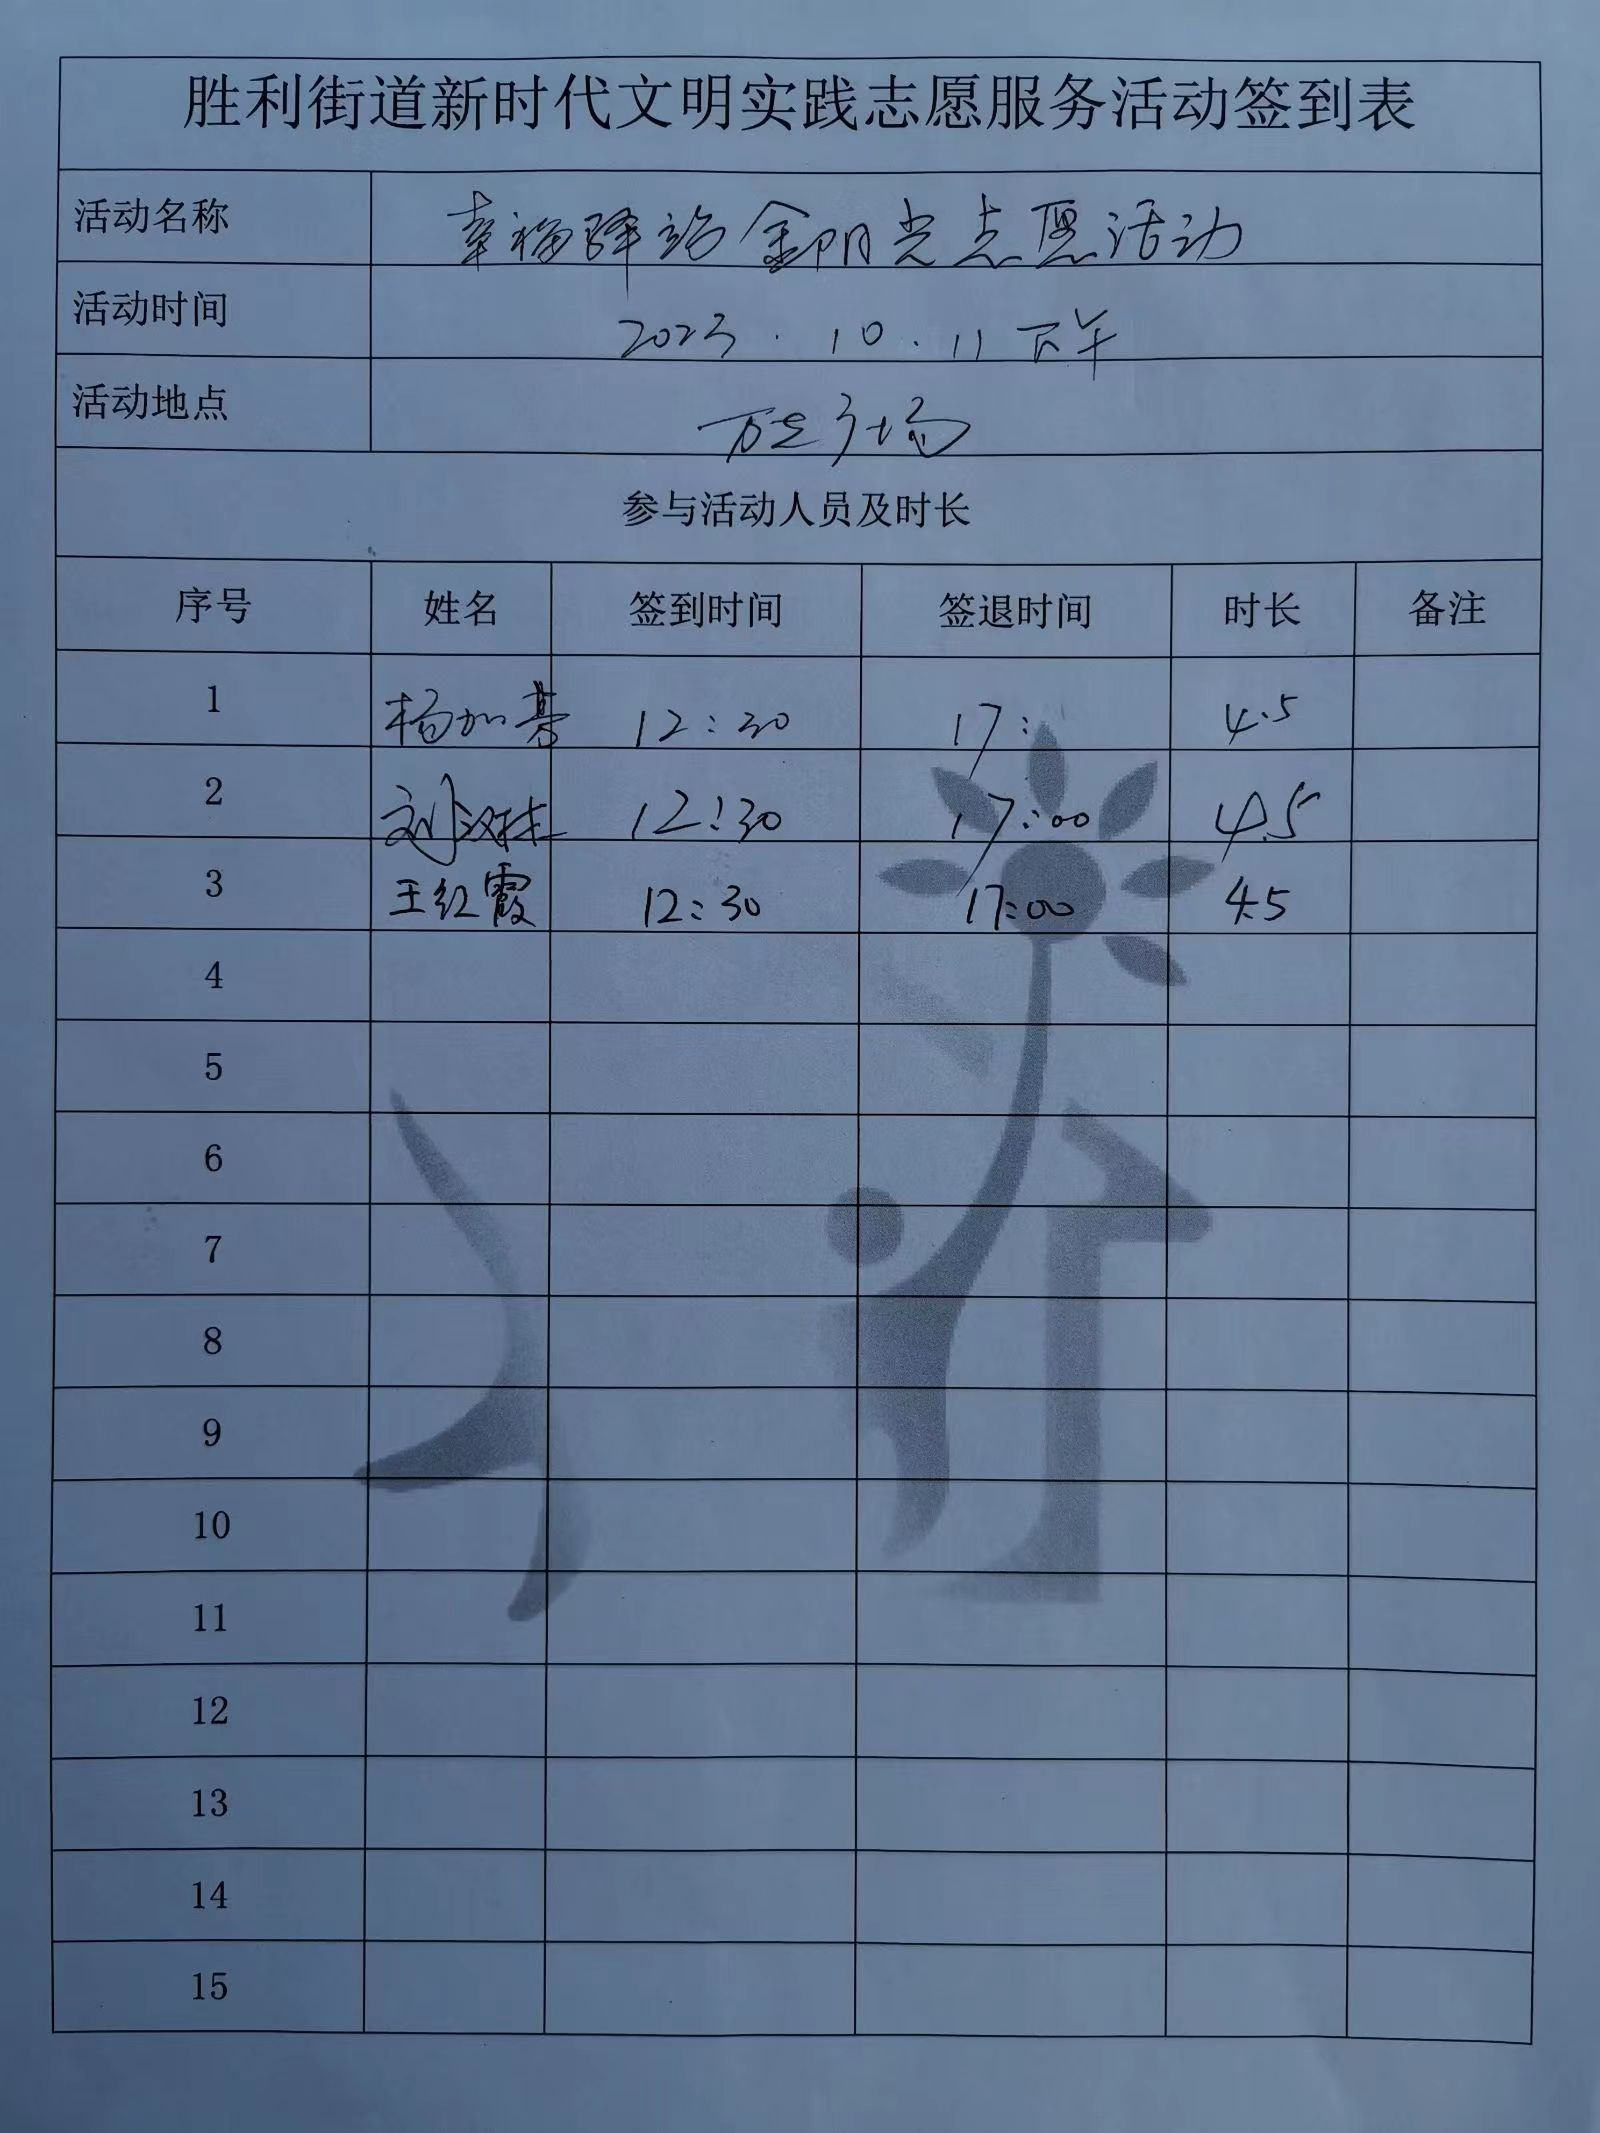 胜利街道新时代文明实践志愿服务活动签到表
活动名称 幸福驿站金阳光志愿活动
活动时间 2023.10.11下午
活动地点 万达广场
参与活动人员及时长
序号 姓名 签到时间 签退时间 时长 备注
1 杨加 12:30 17: 4.5
2 刘汉桂 12:30 17:00 4.5
3 王红霞 12:30 17:00 4.5
4
5
6
7
8
9
10
11
12
13
14
15